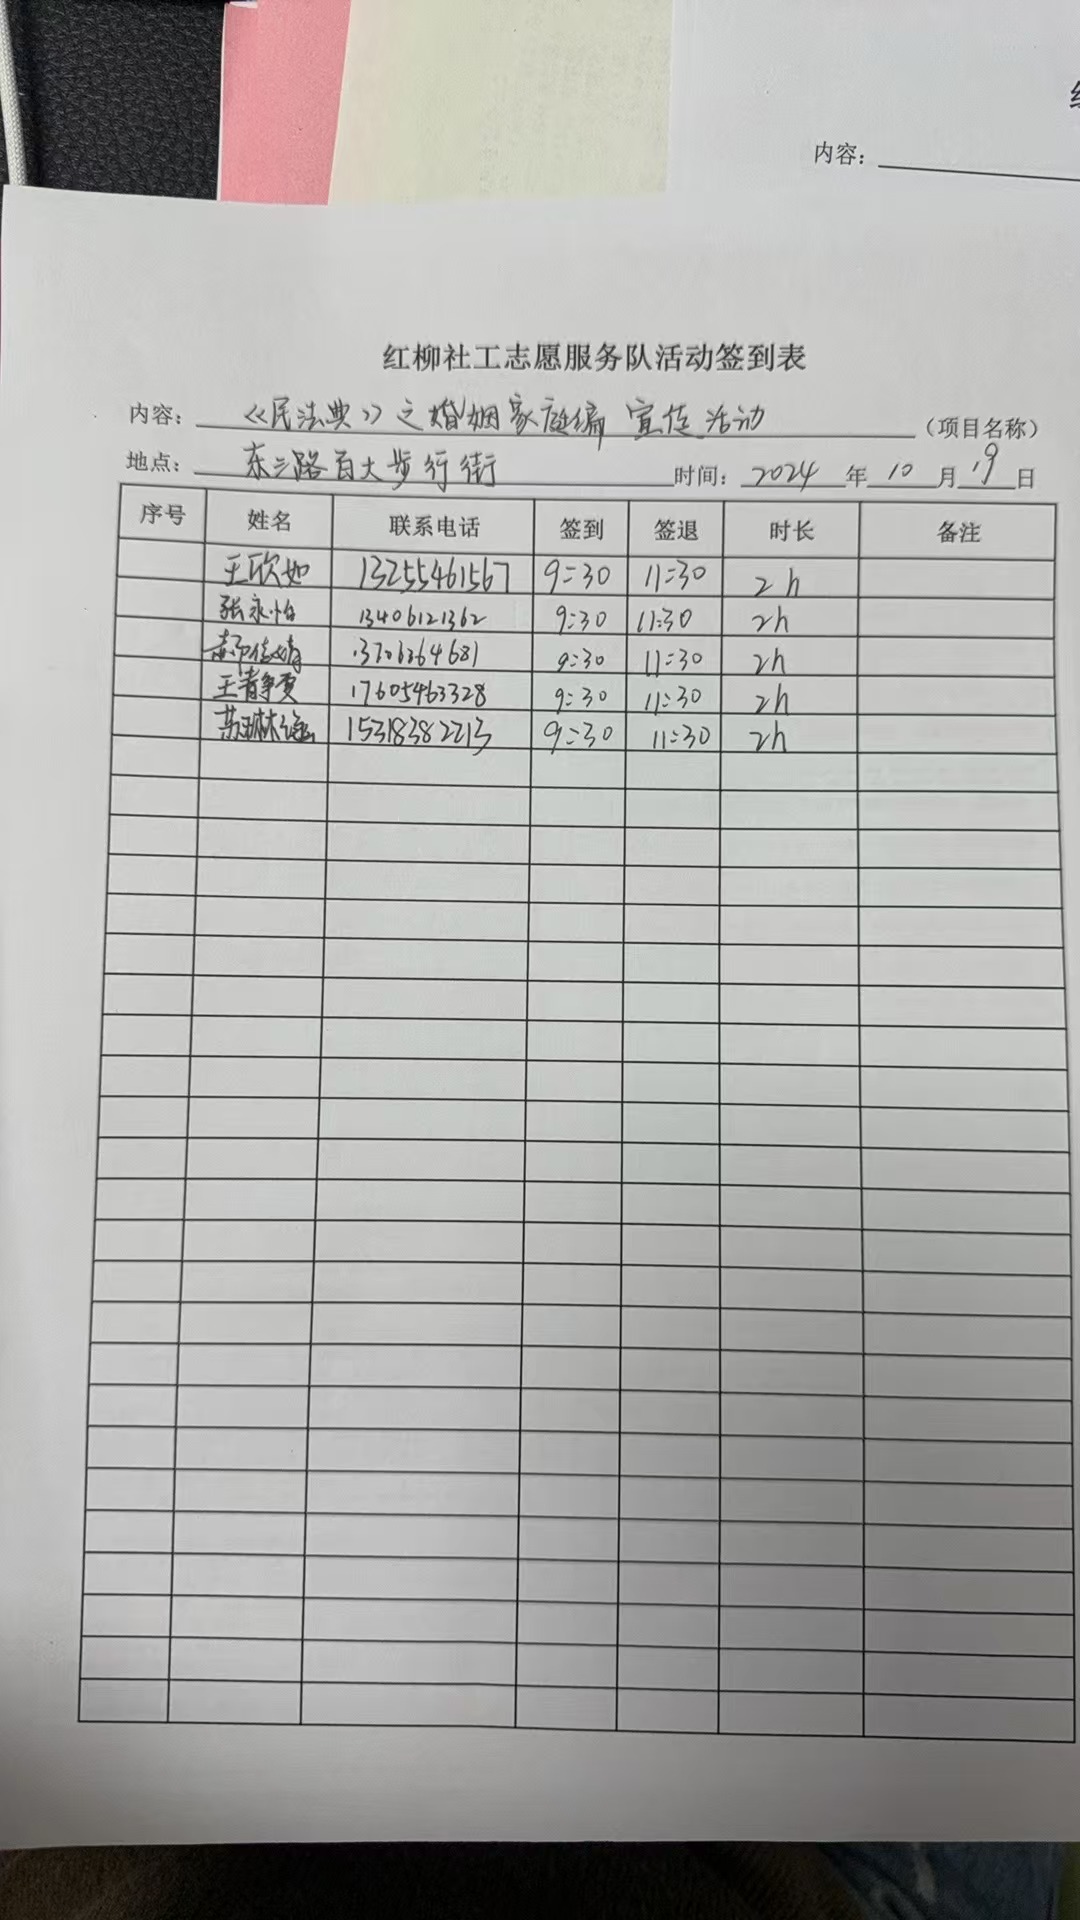 内容：
红柳社工志愿服务队活动签到表
内容： 《民法典》之婚姻家庭编 宣传活动 （项目名称）
地点： 东三路百大步行街 时间： 2024 年 10 月 19 日
序号 姓名 联系电话 签到 签退 时长 备注
王欣如 13255461567 9:30 11:30 2h
张永怡 13406121362 9:30 11:30 2h
郝佳婧 9:30 11:30 2h
王静雯 17605463328 9:30 11:30 2h
苏琳 15318382213 9:30 11:30 2h